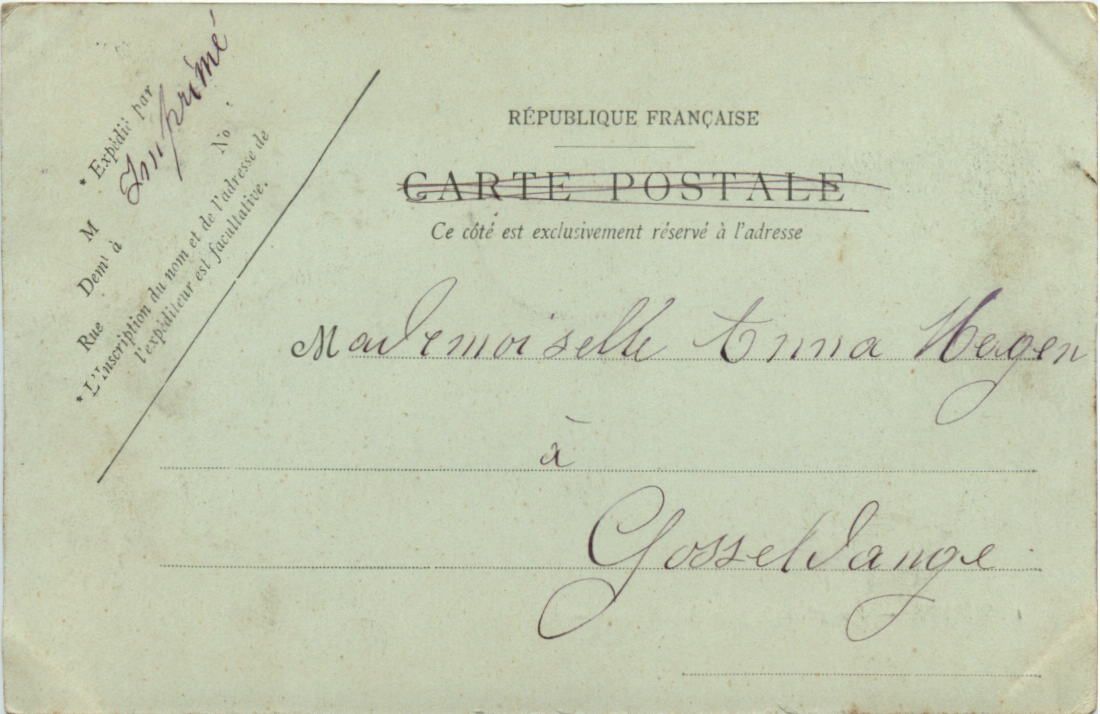 * Expédié par
Imprimé
M
Demt à
Rue No
* L'Inscription du nom et de l'adresse de
l'expéditeur est facultative.
RÉPUBLIQUE FRANÇAISE
CARTE POSTALE
Ce côté est exclusivement réservé à l'adresse
Mademoiselle Anna Hagen
à
Gosseldange